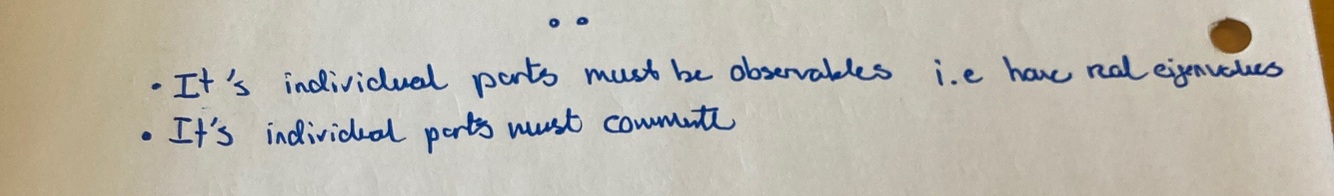 • It's individual parts must be observables i.e have real eigenvalues
• It's individual parts must commute